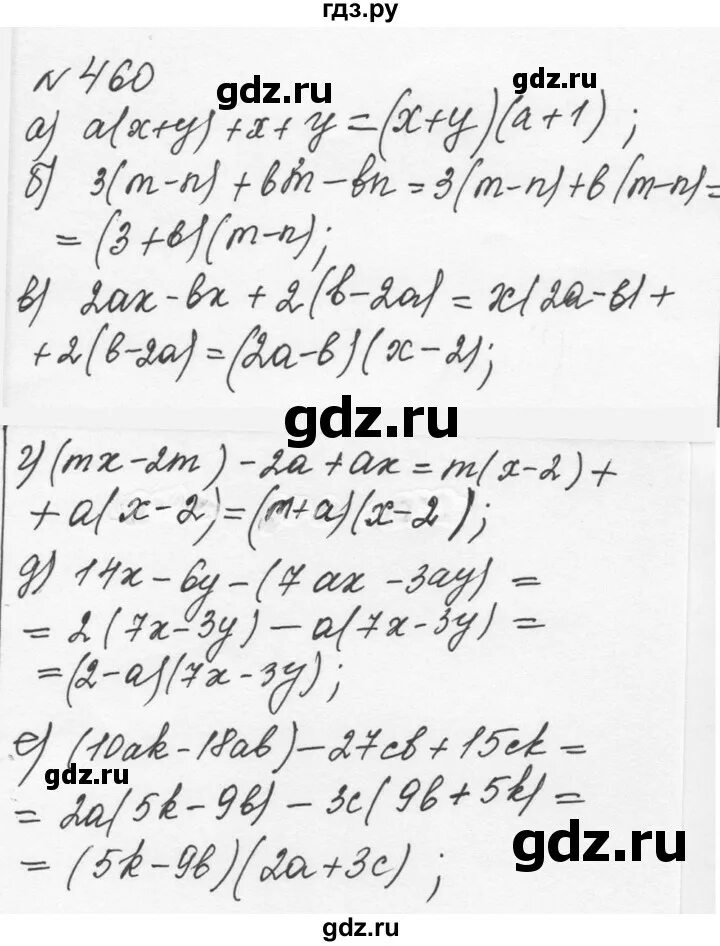 гдз.ру
№ 460
gdz.ru
gdz.ru
а) a(x+y)+x+y=(x+y)(a+1);
б) 3(m-n)+bm-bn=3(m-n)+b(m-n)=
=(3+b)(m-n);
в) 2ax-bx+2(b-2a)=x(2a-b)+
+2(b-2a)=(2a-b)(x-2);
gdz.ru
г) (mx-2m)-2a+ax=m(x-2)+
+a(x-2)=(m+a)(x-2);
д) 14x-6y-(7ax-3ay)=
=2(7x-3y)-a(7x-3y)=
=(2-a)(7x-3y);
е) (10ak-18ab)-27cb+15ck=
gdz.ru
=2a(5k-9b)-3c(9b+5k)=
gdz.ru
=(5k-9b)(2a+3c);
gdz.ru